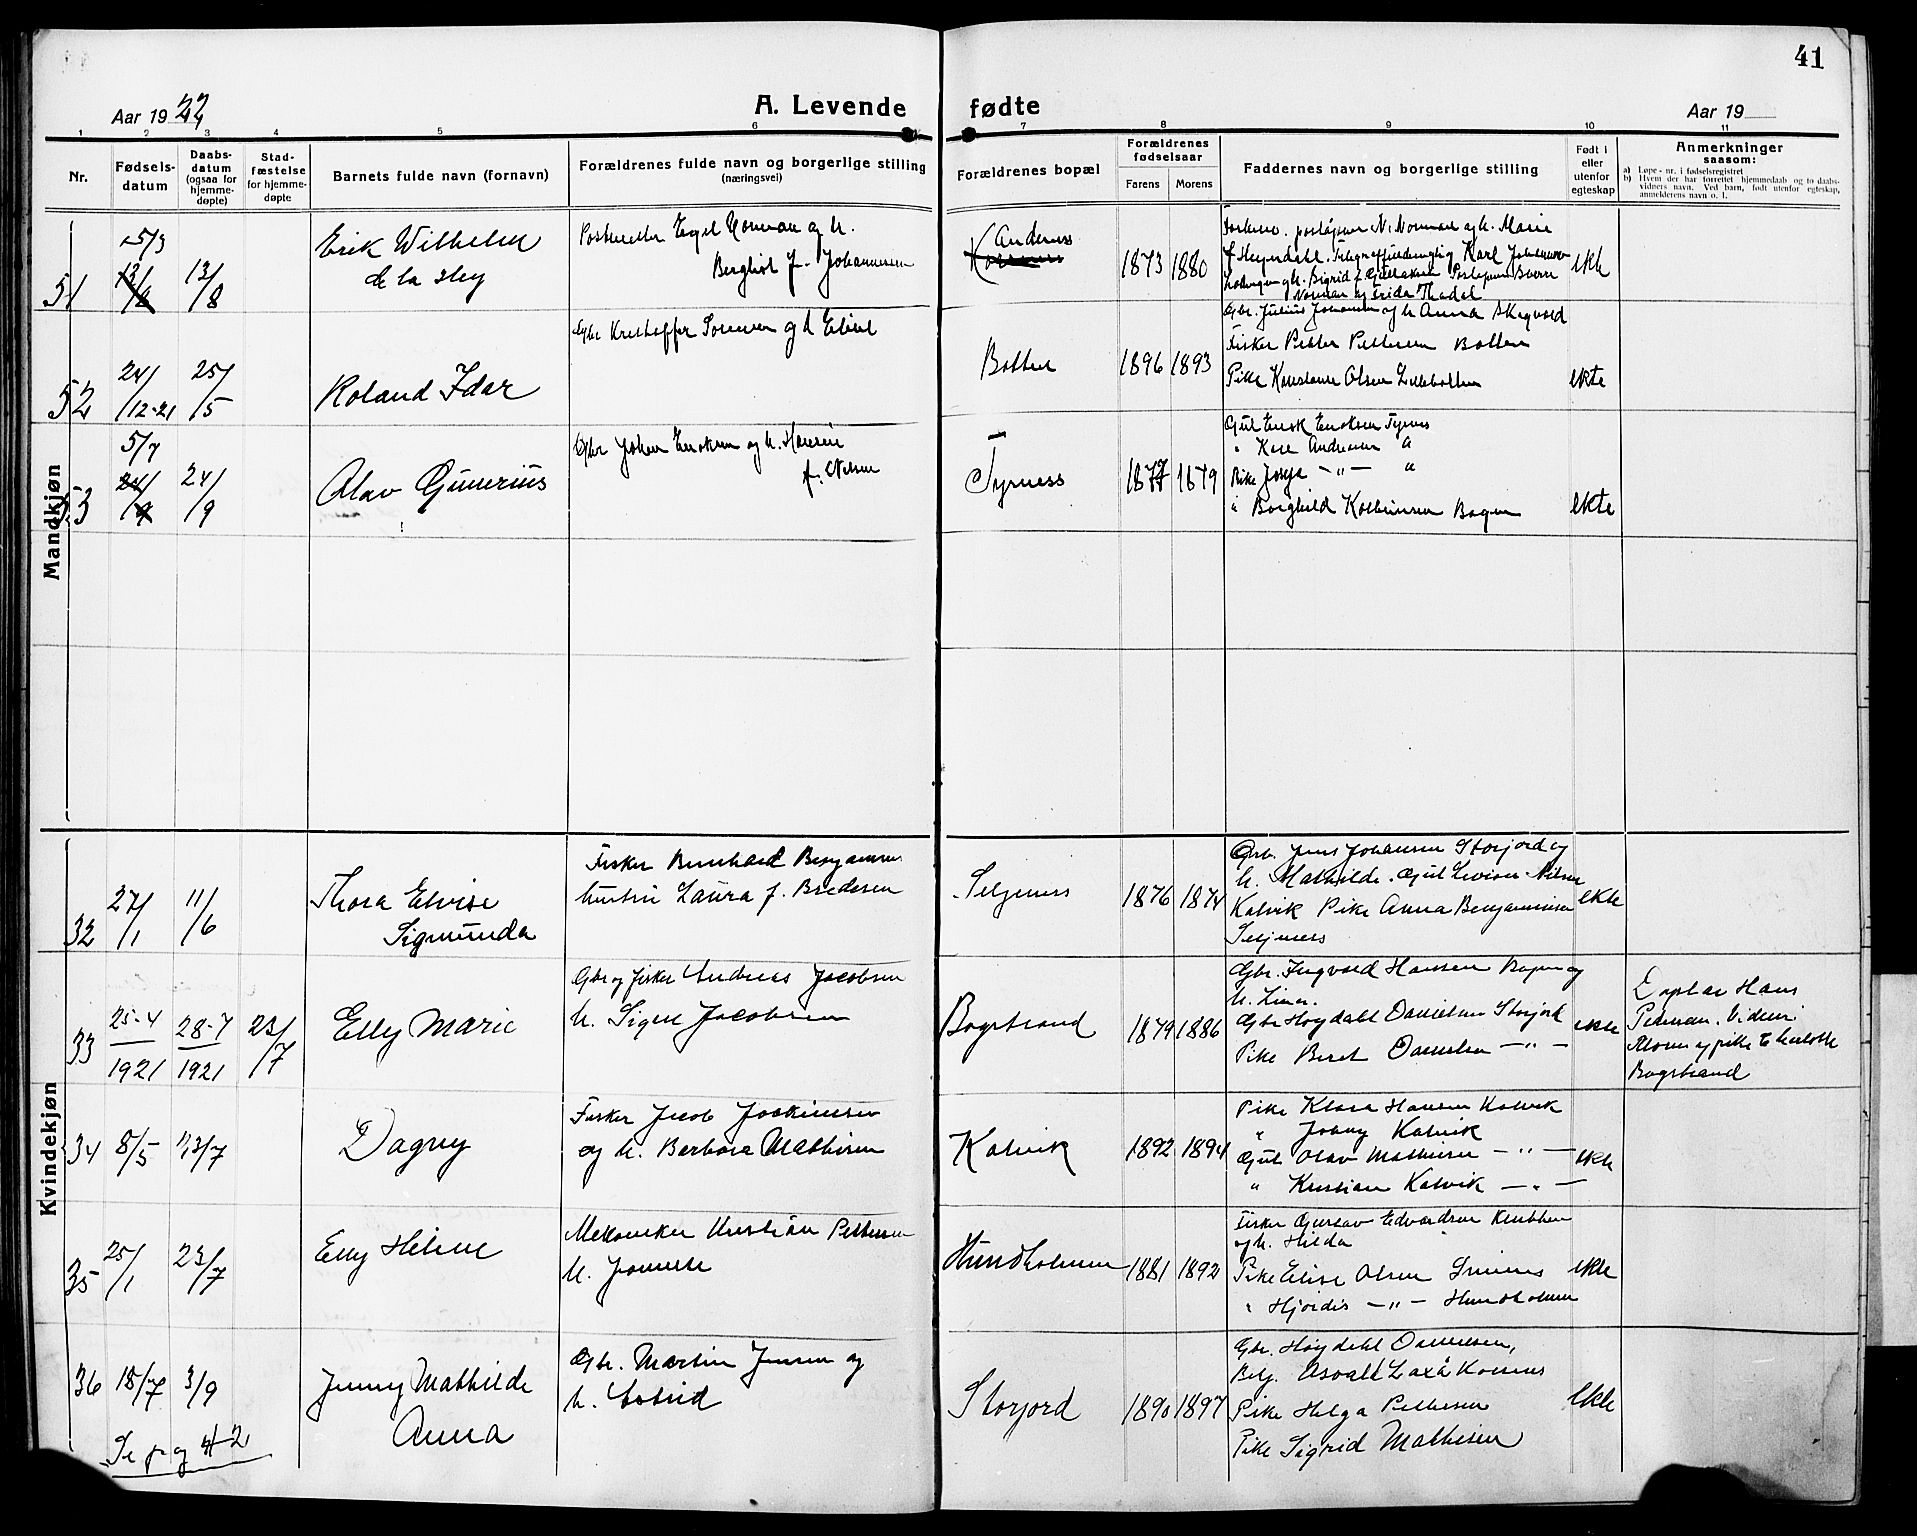 41
Aar 1922
A. Levende fødte
Aar 19
1 2 3 4 5 6 7 8 9 10 11
Nr.
Fødsels-
datum
Daabs-
datum
(ogsaa for
hjemme-
døpte)
Stad-
fæstelse
for hjemme-
døpte
Barnets fulde navn (fornavn)
Forældrenes fulde navn og borgerlige stilling
(næringsvei)
Forældrenes bopæl
Forældrenes
fødselsaar
Farens Morens
Faddernes navn og borgerlige stilling
Født i
eller
utenfor
egteskap
Anmerkninger
saasom:
a) Løpe-nr. i fødselsregistret
b) Hvem der har forrettet hjemmedaab og to daabs-
vidners navn. Ved barn, født utenfor egteskap,
anmelderens navn o. l.
Mandkjøn
51
5/3
13/8
13/8
Erik Wilhelm
de la Hey
Norman og h.
Bergliot f. Johannesen
Andenes
1873 1880
N. Norman og h. Marie
f Heyerdahl. Karl Johannesen
og h. Sigrid f.
Norman og Frida
ekte
52
24/12-21
25/5
Roland Idar
Gbr Kristoffer Sörensen og h Elise
Botten
1896 1893
Gbr. Julius Johansen og h Anna Skogvold
Fisker Petter Pettersen Botten
Pike Konstanse Olsen Lillebotten
ekte
53
5/7
24/9
24/9
Olav Gunerius
Gbr Johan Enoksen og h. Hansine
f. Nilsen
Tyrness
1877 1879
Gut Enok Enoksen Tyrnes
" Kare Andersen "
Pike Josefa — " — "
" Borghild Kolbeinsen Bogen
ekte
Kvindekjøn
32
27/1
11/6
Thora Elvise
Sigmunda
Fisker Bernhard Benjaminsen
hustru Laura f. Bredesen
Seljenes
1876 1874
Gbr. Jens Johansen Storjord og
h. Mathilde. Gut Nilsen
Kalvik Pike Anna Benjaminsen
Seljenes
ekte
33
25-4
1921
28-7
1921
23/7
Elly Marie
Gbr og fisker Andreas Jacobsen
h. Signe Jacobsen
Bogstrand
1879 1886
Gbr. Ingvald Hansen Bogen og
h. Lina.
Gbr Høydahl Danielsen Storjord
Pike Beret Danielsen — " —
ekte
Døpt av Hans
og pike
Bogstrand
34
8/5
23/7
Dagny
Fisker Jacob Joakimsen
og h. Barbara Mathisen
Kalvik
1892 1894
Pike Klara Hansen Kalvik
" Jonny Kalvik
Gut Olav Mathisen — " —
" Kristian Kalvik — " —
ekte
35
25/1
23/7
Elly Helene
Mekaniker Kristian Pettersen
h.
Hundholmen
1881 1892
Fisker Gustav Edvardsen Klubben
og h. Hilda
Pike Elise Olsen
" Hjördis — " — Hundholmen
ekte
36
18/7
3/9
Jenny Mathilde
Anna
Gbr. Martin Jensen og
h. Astrid
Storjord
1890 1897
Gbr. Høydahl Danielsen,
Asvald Laxå Korsnes
Pike Helga Pettersen
Pike Sigrid Mathisen
ekte
Se pag 42